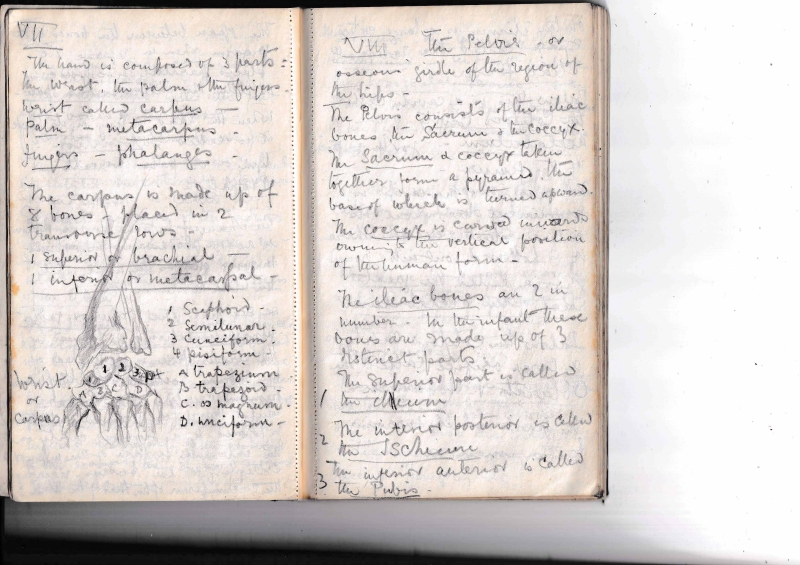 VII
The hand is composed of 3 parts =
the wrist, the palm & the fingers.
Wrist called carpus —
Palm — metacarpus -
fingers — phalanges -
The carpus is made up of
8 bones - placed in 2
transverse rows -
1 superior or brachial —
1 inferior or metacarpal -
1 Scaphoid -
2 Semilunar -
3 Cuneiform -
4 pisiform -
A trapezium -
B trapezoid -
C. os magnum -
D. unciform -
1 2 3
C D
Wrist
or
carpus
VIII The Pelvis - or
osseous girdle of the region of
the hips -
The Pelvis consists of the iliac
bones, the Sacrum & the coccyx.
The Sacrum & coccyx taken
together form a pyramid, the
base of which is turned upward.
The coccyx is curved inwards
owing to the vertical position
of the human form -
The iliac bones are 2 in
number - In the infant these
bones are made up of 3
distinct parts.
The superior part is called
1 the ilium
2 The inferior posterior is called
the ISchium
The inferior anterior is called
3 the Pubis -